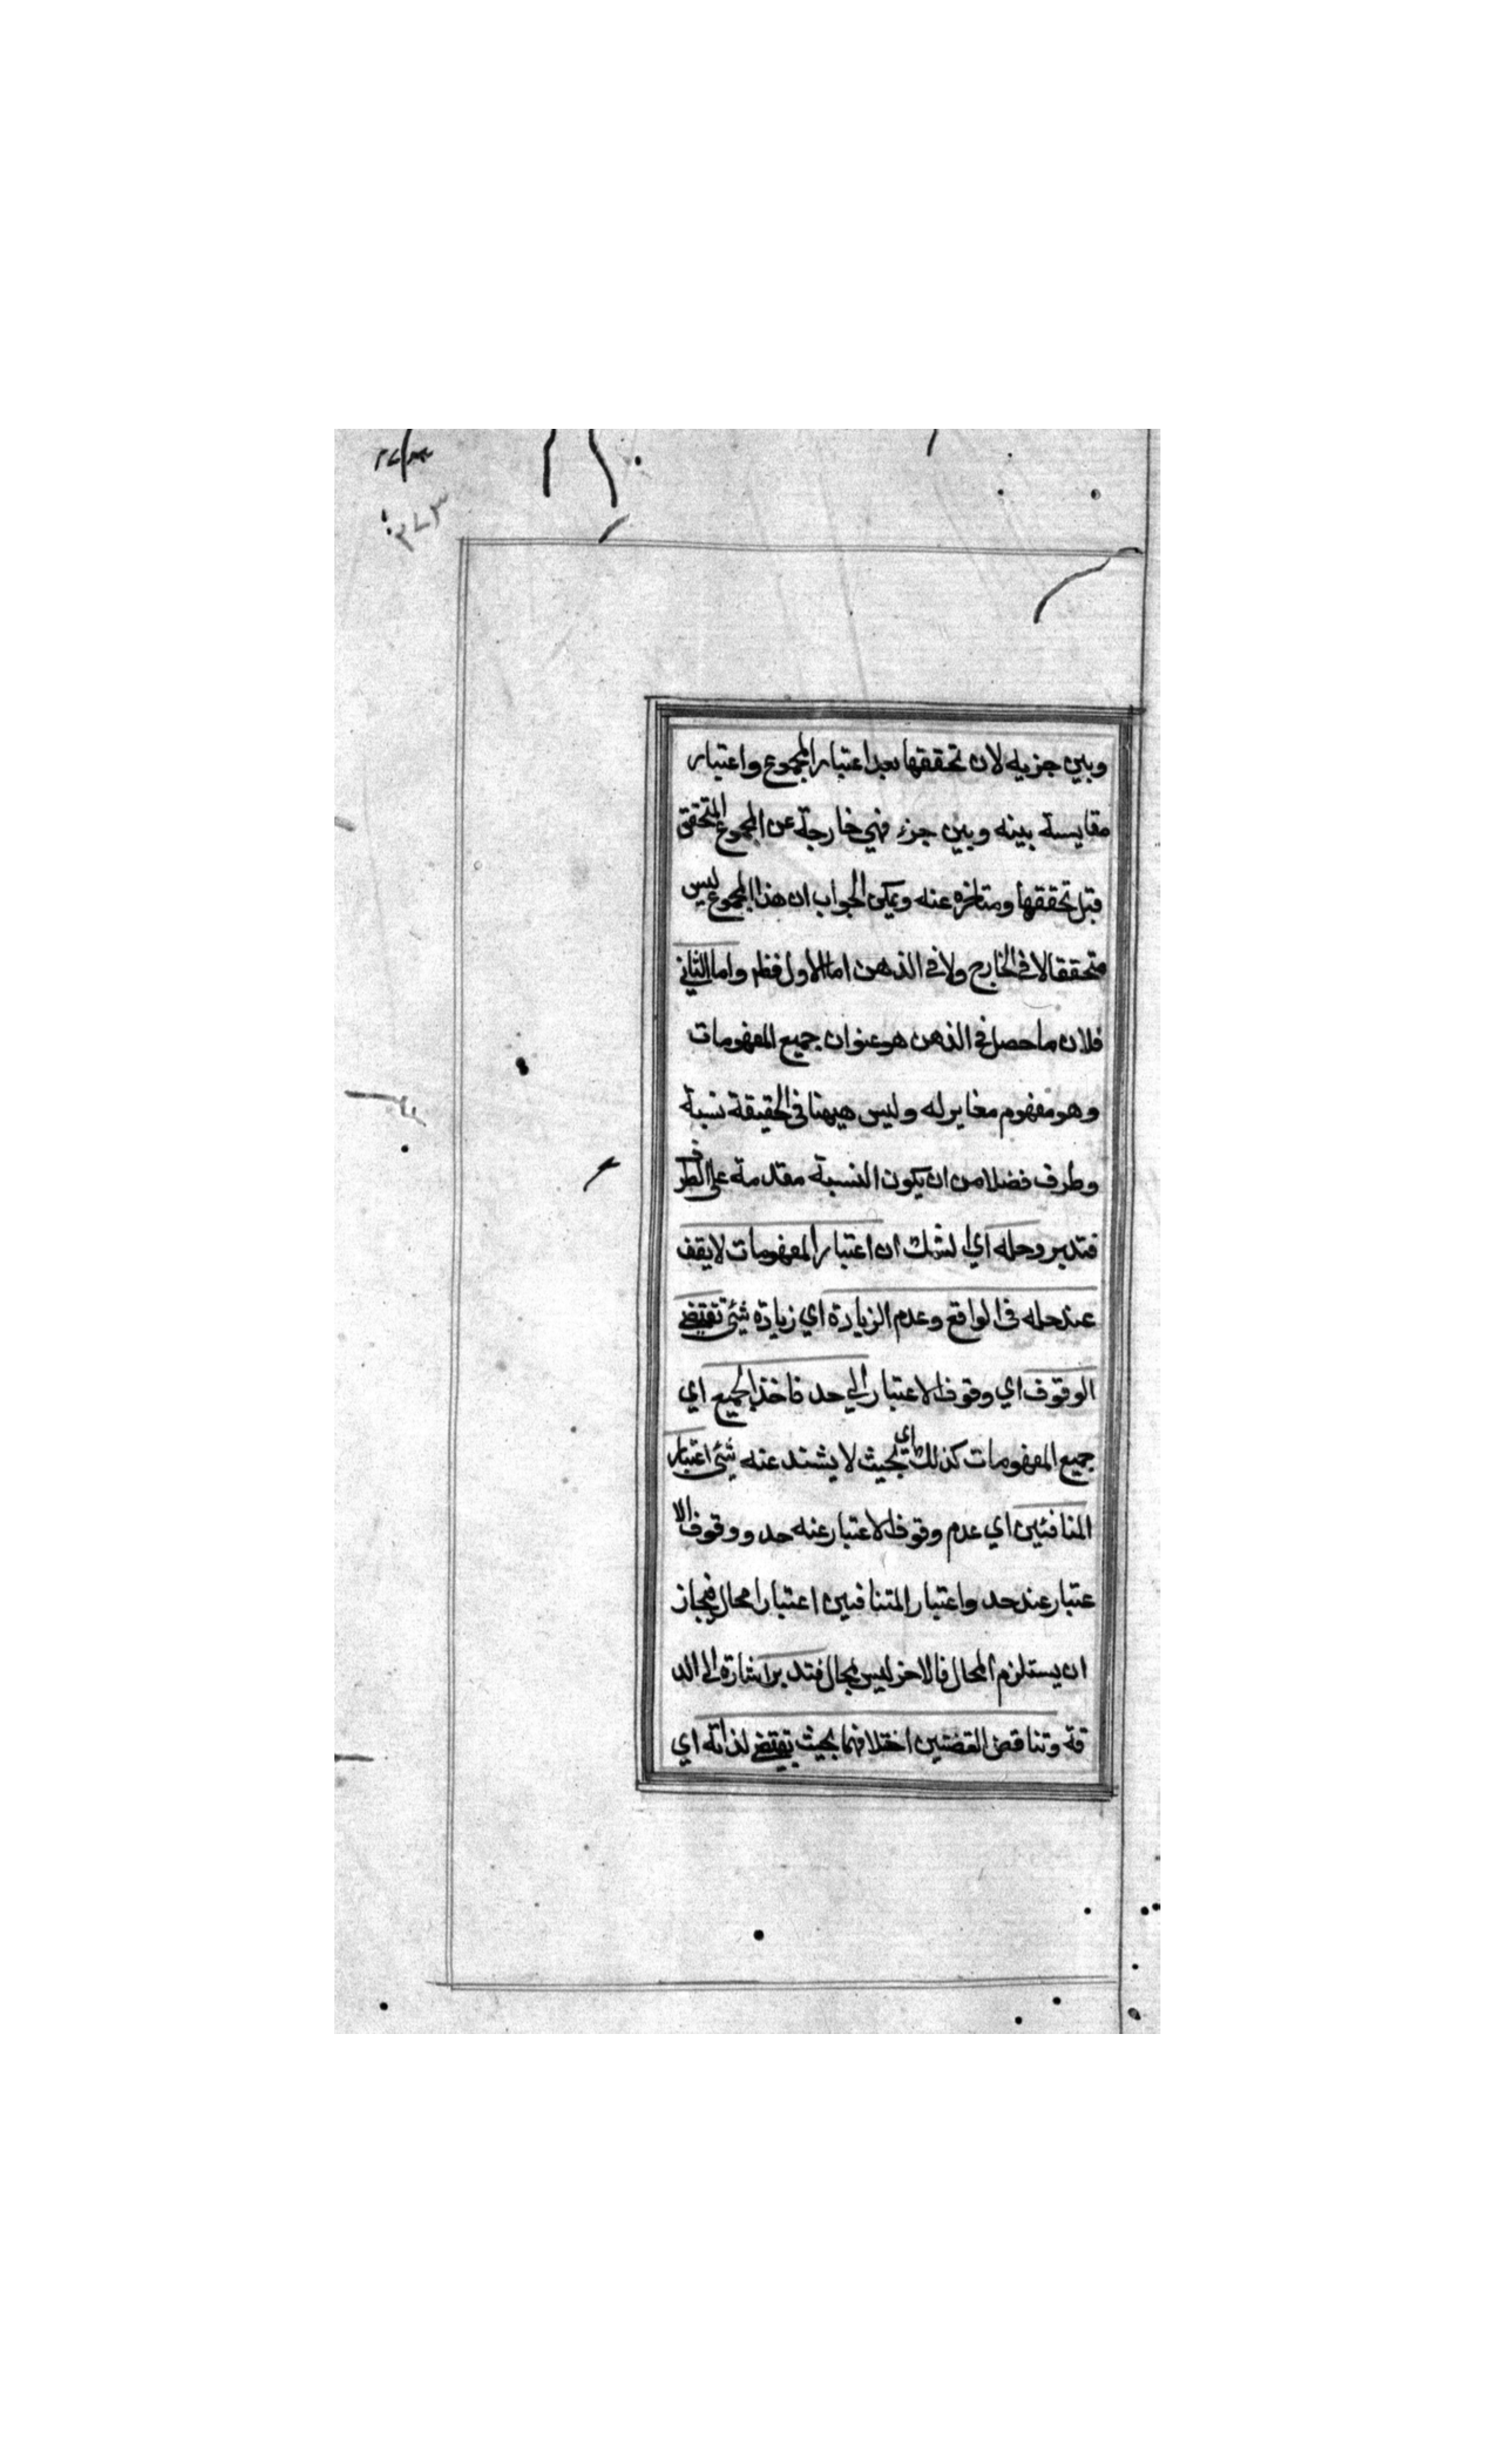 ٢٧٣
وبين جزيه لان تحققها بعد اعتبار المجموع واعتبار
مقايسة بينه وبين جزء فهي خارجة عن المجموع المتحقق
قبل تحققها ومتاخره عنه ويمكن الجواب ان هذا المجموع ليس
متحققا لا في الخارج ولا في الذهن اما الاول فظم واما الثاني
فلان ما حصل في الذهن هو عنوان جميع المفهومات
وهو مفهوم مغاير له وليس هيهنا في الحقيقة نسبة
وطرف فضلا من ان يكون النسبة مقدمة على الطرف
فتدبر وحله اي الشك ان اعتبار المفهومات لا يقف
عند حله في الواقع وعدم الزيادة اي زيادة شئ تقتضي
الوقوف اي وقوف الاعتبار الي حد فاخذ الجميع اي
جميع المفهومات كذلك اي بحيث لا يشند عنه شئ اعتبار
المنافئين اي عدم وقوف الاعتبار عنه حد ووقوف الا
عتبار عند حد واعتبار المتنافيين اعتبار امحال فيجاز
ان يستلزم المحال فالاخر ليس بمحال فتدبر اشارة الى الد
قة وتناقض القضتين اختلافهما بحيث يقتضي لذاته اي